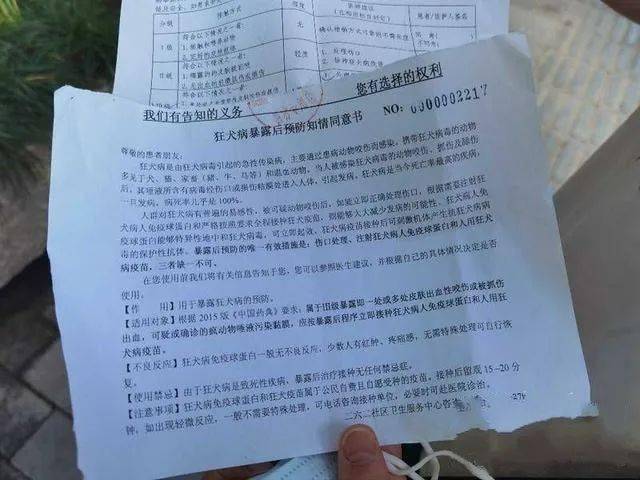 分级
符合以下情况之一者：
我们有告知的义务 您有选择的权利
狂犬病暴露后预防知情同意书 NO：000003217
尊敬的患者朋友：
狂犬病是由狂犬病毒引起的急性传染病，主要通过患病动物咬伤而感染，携带狂犬病毒的动物
多见于犬、猫、家畜（猪、牛、马等）和温血动物，当人被感染狂犬病毒的动物咬伤、抓伤及舔伤
后，其唾液所含有病毒经伤口或损伤粘膜处进入人体，引起发病，狂犬病是当今死亡率最高的疾病，
一旦发病，病死率几乎是 100%。
人群对狂犬病有普遍的易感性，被可疑动物咬伤后，如能立即正确处理伤口，根据需要注射狂
犬病人免疫球蛋白和严格按照要求全程接种狂犬疫苗，则能够大大减少发病的可能性，狂犬病人免
疫球蛋白能够特异性地中和狂犬病毒，可立即起效，狂犬病疫苗接种后可刺激机体产生抗狂犬病病
毒的保护性抗体。暴露后预防的唯一有效措施是：伤口处理、注射狂犬病人免疫球蛋白和人用狂犬
病疫苗，三者缺一不可。
在您使用前我们将有关信息告知于您，您可以参照医生建议，并根据自己的具体情况决定是否
使用。
【作 用】用于暴露狂犬病的预防。
【适用对象】根据 2015 版《中国药典》要求：属于Ⅲ级暴露即一处或多处皮肤出血性咬伤或被抓伤
出血，可疑或确诊的疯动物唾液污染黏膜，应按暴露后程序立即接种狂犬病人免疫球蛋白和人用狂
犬病疫苗。
【不良反应】狂犬病免疫球蛋白一般无不良反应，少数人有红肿、疼痛感，无需特殊处理可自行恢
复。
【使用禁忌】由于狂犬病是致死性疾病，暴露后治疗接种无任何禁忌症。
【注意事项】狂犬病免疫球蛋白和狂犬疫苗属于公民自费且自愿受种的疫苗，接种后留观 15-20 分
钟，如出现轻微反应，一般不需要特殊处理，可电话咨询接种单位，必要时可赴医院诊治。
二六二社区卫生服务中心咨